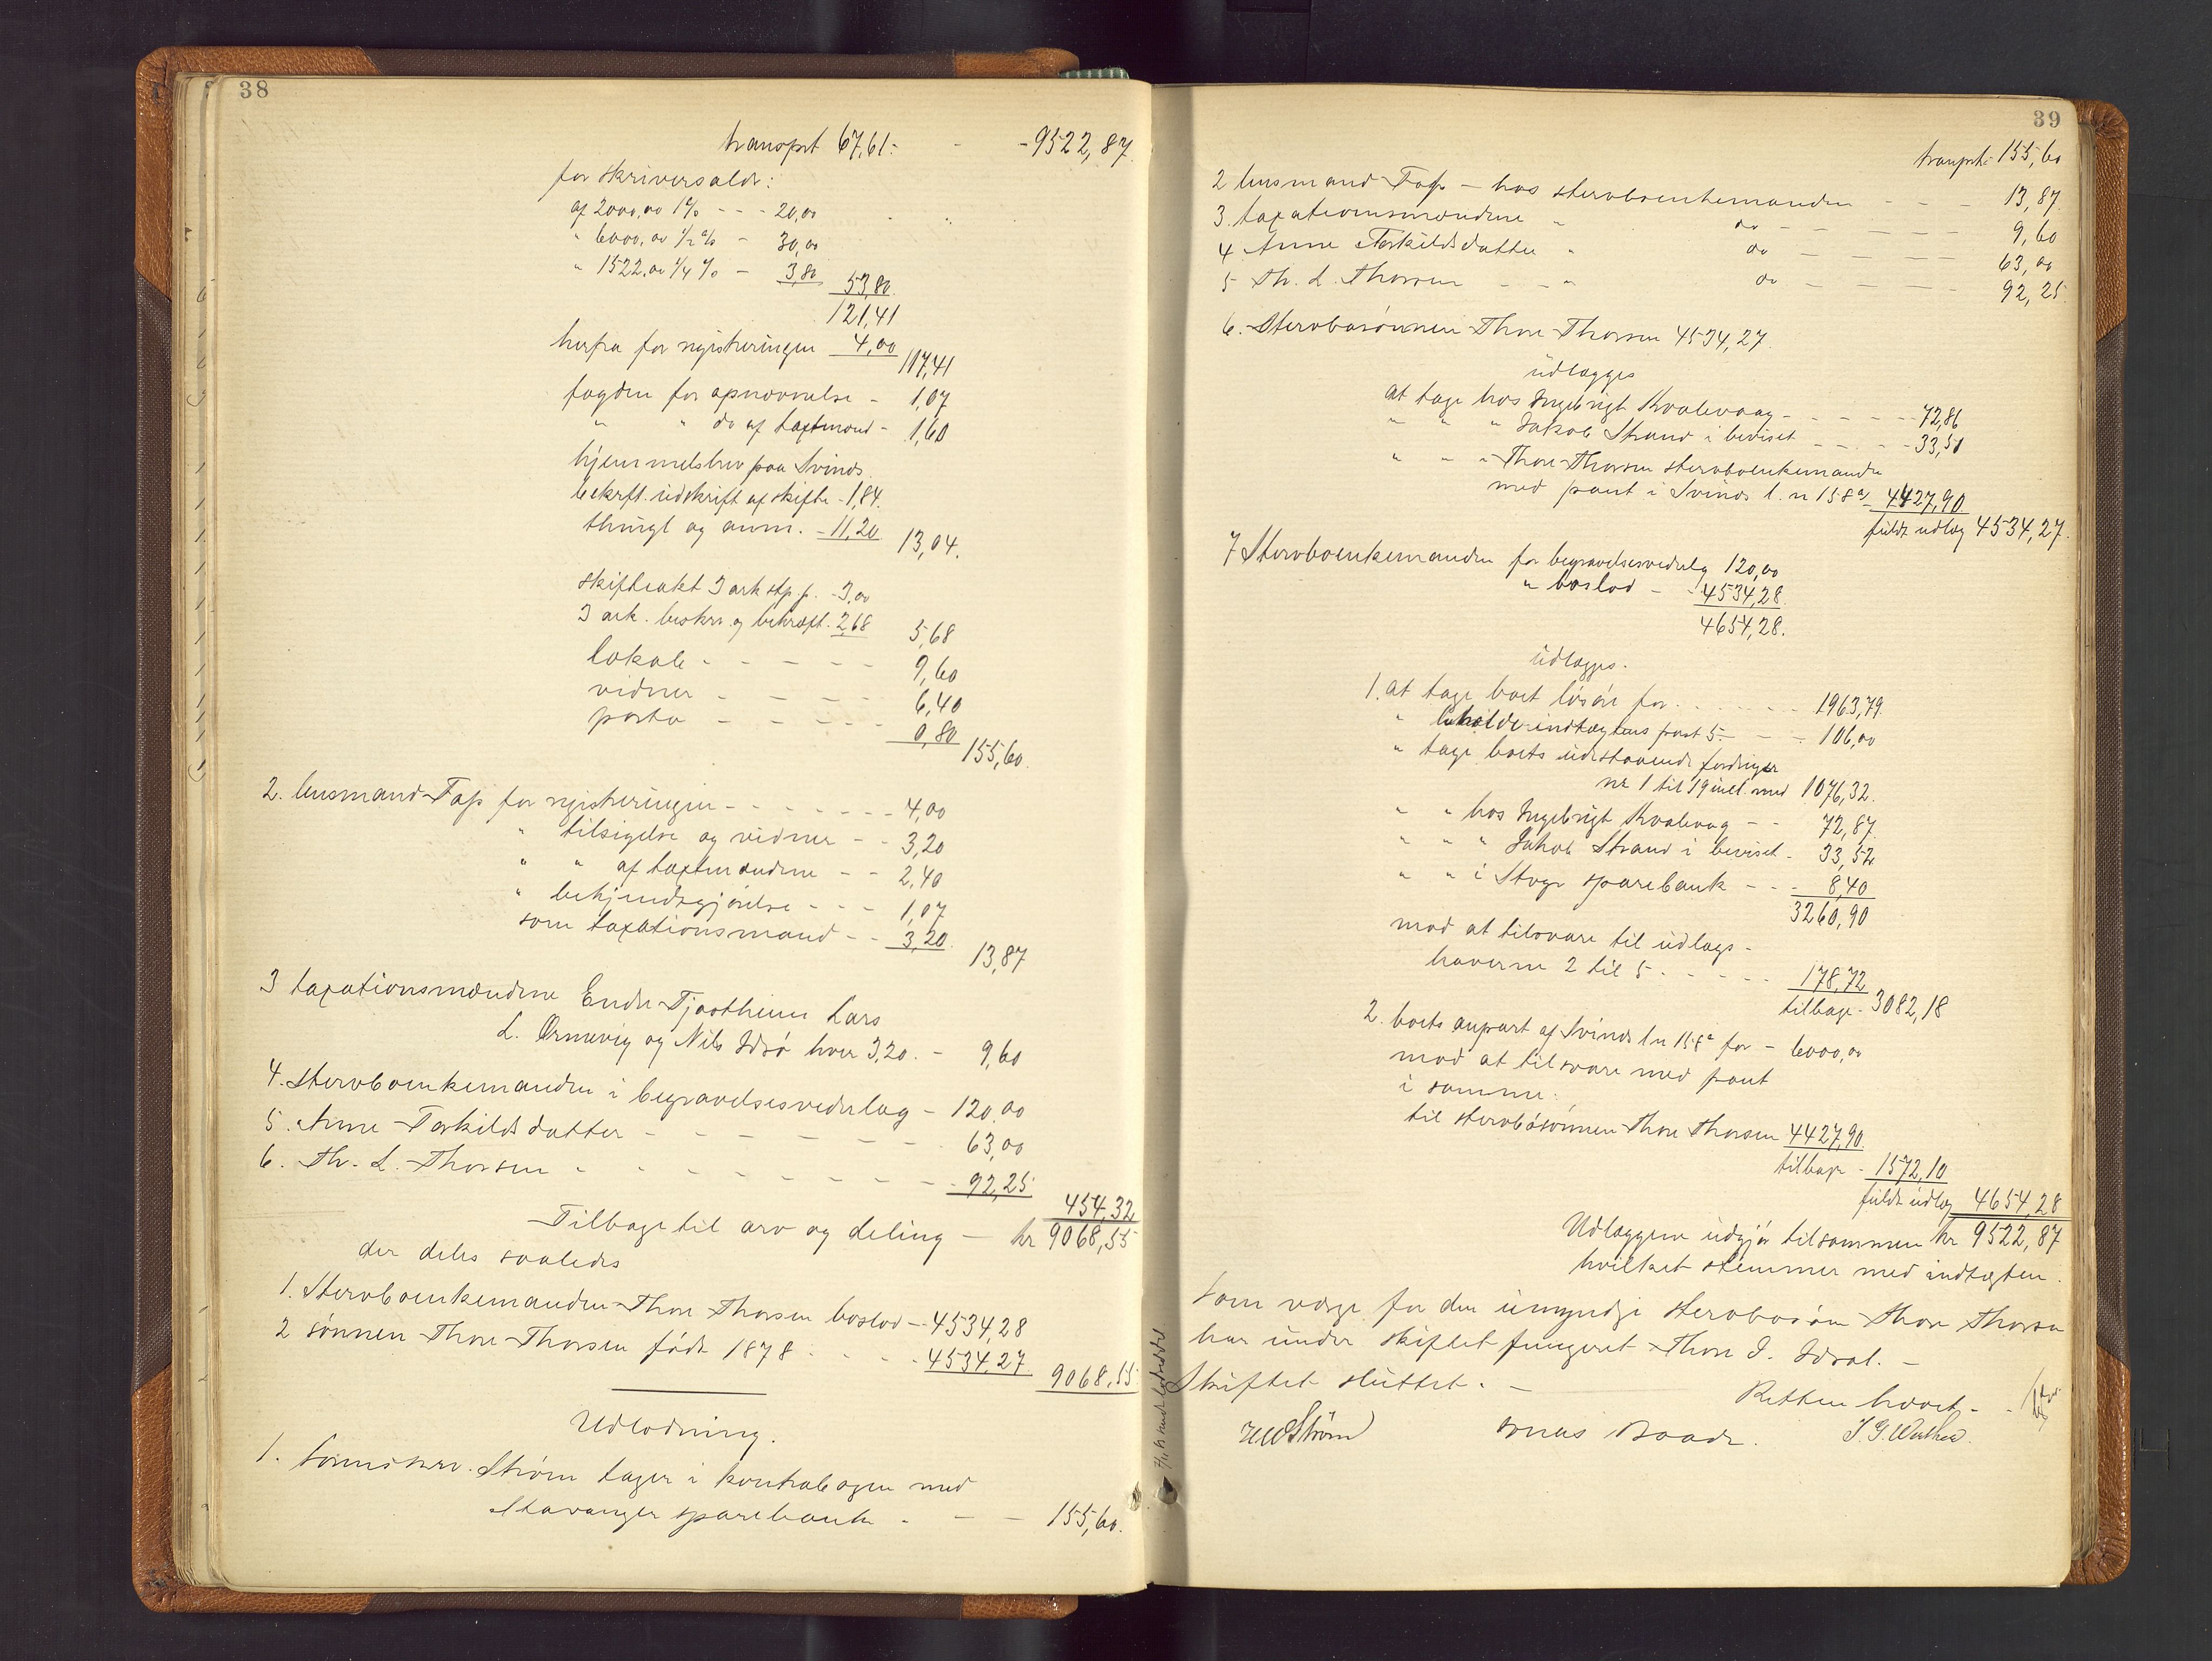 38
transprt 67,61. - - 9522,87
for skriversaldr:
af 2000,00 1% - - - 20,00
" 6000,00 1/2 % - 30,00
" 1522,00 1/4 % - 3,80 53,80
121,41
herfra for registreringen 4,00 117,41
fogden for opnævnelse - 1,07
" " do af taxtmænd - 1,60
hjemmelsbrev paa Svinds
bekrft. udskrift af skifte - 1,84.
thingl og anm. - 11,20 13,04.
skifteakt 3 ark stp. p. - 3,00
3 ark. beskr. og bekræft. 2,68 5,68
lokale - - - - - 9,60
vidner - - - - 6,40
porto - - - - - 0,80 155,60
2. lensmand Tap for registreringen - - - - - - 4,00
" tilsigelse og vidner - - 3,20
" " af taxtmændene - - 2,40
" bekjendtgjørelse - - - 1,07
som taxationsmand - - 3,20 13,87
3 taxationsmændene Endre Tjøstheim Lars
L. Ørnevig og Nils Idsø hver 3,20. - 9,60
4. Stervboenkemanden i begravelsesvederlag - 120,00
5. Anne Torkildsdatter - - - - - - - 63,00
6. Th. L. Thorsen - - - - - - - - 92,25 454,32
Tilbage til arv og deling - kr 9068,55
der deles saaledes
1. Stervboenkemanden Thore Thorsen boslod - 4534,28
2 sønnen Thore Thorsen født 1878 - - - 4534,27 9068,55
Udlodning.
1. Sorenskrv. Strøm tager i kontrabogen med
Stavanger sparebank - - - 155,60.
39
transprt - 155,60
2 lensmand Tap - hos stervboenkemanden - - - 13,87
3. taxationsmændene " do - - - - - 9,60
4. Anne Torkildsdatter " do - - - - 63,00
5 Th. L. Thorsen - - " do - - - - 92,25
6. Stervbosønnen Thore Thorsen 4534,27.
udlægges
at tage hos Ingebrigt Kvalevaag - - - - - 72,86
" " " Jakob Strand i beviset - - - - 33,51
" " " Thore Thorsen stervboenkemanden
med pant i Svinds l. n 158a 4427,90
fuldt udlæg 4534,27.
7 Stervboenkemanden for begravelsesvederlag 120,00
" boslod - - 4534,28
4654,28.
udlægges.
1. at tage boet løsøre for - - - - - - 1963,79
" beholde indtægtens post 5 - - - 106,00
" tage boets udestaaende fordringer
nr 1 til 19 incl. med 1076,32.
" " hos Ingebrigt Kvalevag - - 72,87
" " " Jakob Strand i beviset - 33,52
" " i Stvgr sparebank - - - 8,40
3260,90
mod at tilsvare til udlægs-
haverne 2 til 5 - - - - - 178,72
tilbage - 3082,18
2. boets anpart af Svinds l n 158a for - 6000,00
mod at tilsvare med pant
i samme:
til stervbosønnen Thore Thorsen 4427,90
tilbage - 1572,10
fuldt udlæg 4654,28
Udlæggene udgjør tilsammen kr 9522,87
hvilket stemmer med indtægten.
Som værge for den umyndige stervbosøn Thore Thorsen
har under skiftet fungeret Thore I. Idsal. -
Skiftet sluttet. -
Retten hævet. -
Strøm Jonas Baade. I. G.